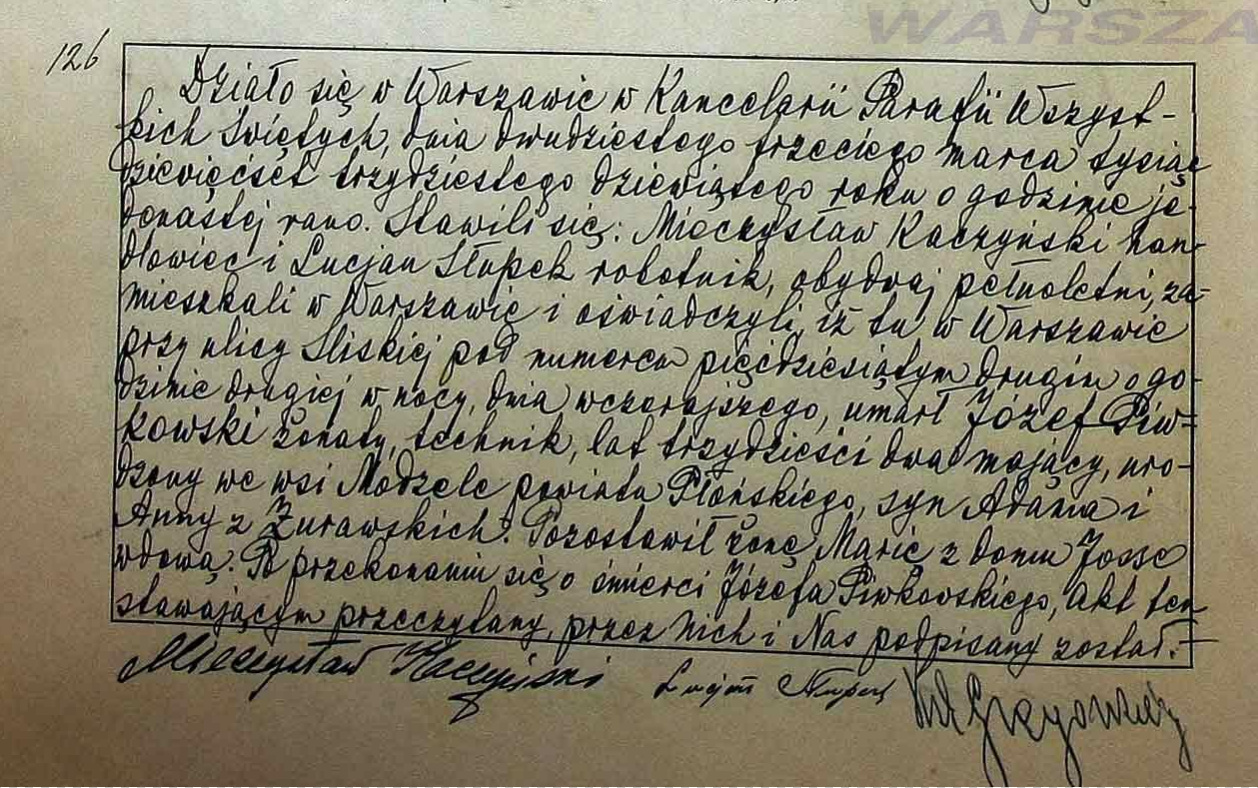 WARSZA
126
Działo się w Warszawie w Kancelarii Parafii Wszyst-
kich Świętych, dnia dwudziestego trzeciego marca tysiąc
dziewięćset trzydziestego dziewiątego roku o godzinie je-
denastej rano. Stawili się: Mieczysław Kaczyński han-
dlowiec i Lucjan Słupek robotnik, obydwaj pełnoletni, za-
mieszkali w Warszawie i oświadczyli, iż tu w Warszawie
przy ulicy Śliskiej pod numerem pięćdziesiątym drugim o go-
dzinie drugiej w nocy, dnia wczorajszego, umarł Józef Piw-
kowski żonaty, technik, lat trzydzieści dwa mający, uro-
dzony we wsi Modzele powiatu Płońskiego, syn Adama i
Anny z Żurawskich. Pozostawił żonę Marię z domu Josse
wdową. Po przekonaniu się o śmierci Józefa Piwkowskiego, Akt ten
stawającym przeczytany, przez nich i Nas podpisany został.-
Mieczysław Kaczyński Lucjan Słupek